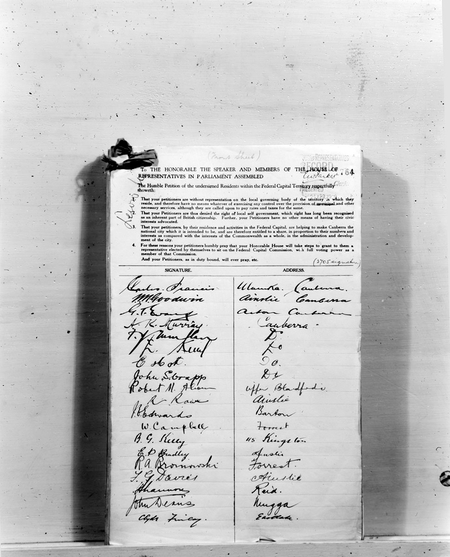 To THE HONORABLE THE SPEAKER AND MEMBERS OF THE HOUSE OF
REPRESENTATIVES IN PARLIAMENT ASSEMBLED
The Humble Petition of the undersigned Residents within the Federal Capital Territory respectfully
showeth.
That your petitioners are without representation on the local governing body of the territory in which they
reside, and therefore have no means whatever of exercising any control over the provision of municipal and other
necessary services, although they are called upon to pay rates and taxes for the same.
That your Petitioners are thus denied the right of local self government, which right has long been recognised
as an inherent part of British citizenship. Further, your Petitioners have no other means of having their civic
interests advocated.
That your petitioners, by their residence and activities in the Federal Capital, are helping to make Canberra the
national city which it is intended to be, and are therefore entitled to a share, in proportion to their numbers and
interests as compared with the interests of the Commonwealth as a whole, in the administration and develop-
ment of the city.
4. For these reasons your petitioners humbly pray that your Honorable House will take steps to grant to them a
representative elected by themselves to sit on the Federal Capital Commission, with full voting power as a
member of that Commission.
And your Petitioners, as in duty bound, will ever pray, etc.
SIGNATURE. ADDRESS.
Charles Francis Canberra
W Goodwin Ainslie Canberra
G. T. Evans Acton Canberra
H. R. Murray Canberra
Do
L. Kelly Do
Do
John S. Crapps Do
Robert M. Upper Blandfordia
R Rowe Ainslie
Edwards Barton
W. Campbell Forrest
B. G. Kelly 115 Kingston
Hadley Ainslie
R A Broinowski Forrest.
F. G. Davies Ainslie
Shannon Reid.
John Deans Mugga
Clyde Finlay. Eastlake.